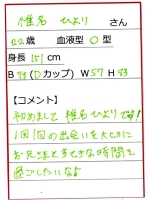 椎名 ひより さん
22歳 血液型 O型
身長 151cm
B 78(Dカップ) W57 H83
【コメント】
初めまして 椎名ひよりです!
1回1回の出会いを大切に
お兄さんとすてきな時間を
過ごしたいなぁ